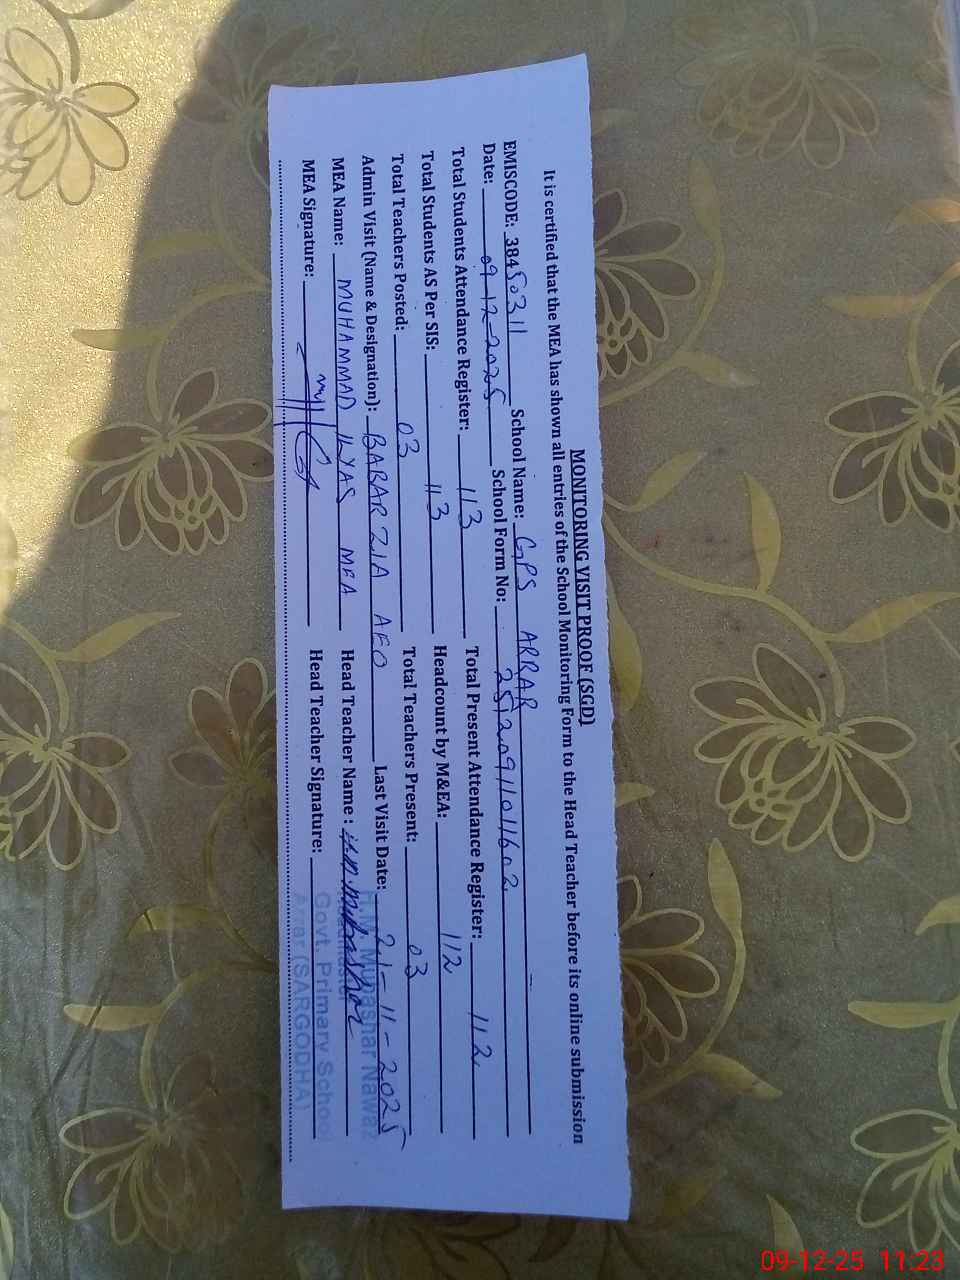 MONITORING VISIT PROOF (SGD)
It is certified that the MEA has shown all entries of the School Monitoring Form to the Head Teacher before its online submission
EMISCODE: 38450311 School Name: GPS ARRAR
Date: 09-12-2025 School Form No: 25120911011602
Total Students Attendance Register: 113 Total Present Attendance Register: 112
Total Students AS Per SIS: 113 Headcount by M&EA: 112
Total Teachers Posted: 03 Total Teachers Present: 03
Admin Visit (Name & Designation): BABAR ZIA AEO Last Visit Date: 21-11-2025
MEA Name: MUHAMMAD ILYAS MEA Head Teacher Name : H.M. Mubashar
MEA Signature: Head Teacher Signature:
H.M. Mubashar Nawaz
Headmaster
Govt. Primary School
Arrar (SARGODHA)
09-12-25 11:23